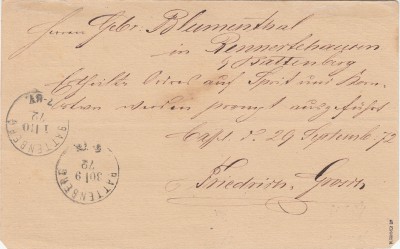 Herren Gebr. Blumenthal
in Rennertehausen
b/ Battenberg
Ertheilte Ordres auf Sprit und Korn-
werden prompt ausgeführt
Cassel d. 29 Septemb. 72
Friedrich
BATTENBERG
1 10
72
BATTENBERG
30 9
72